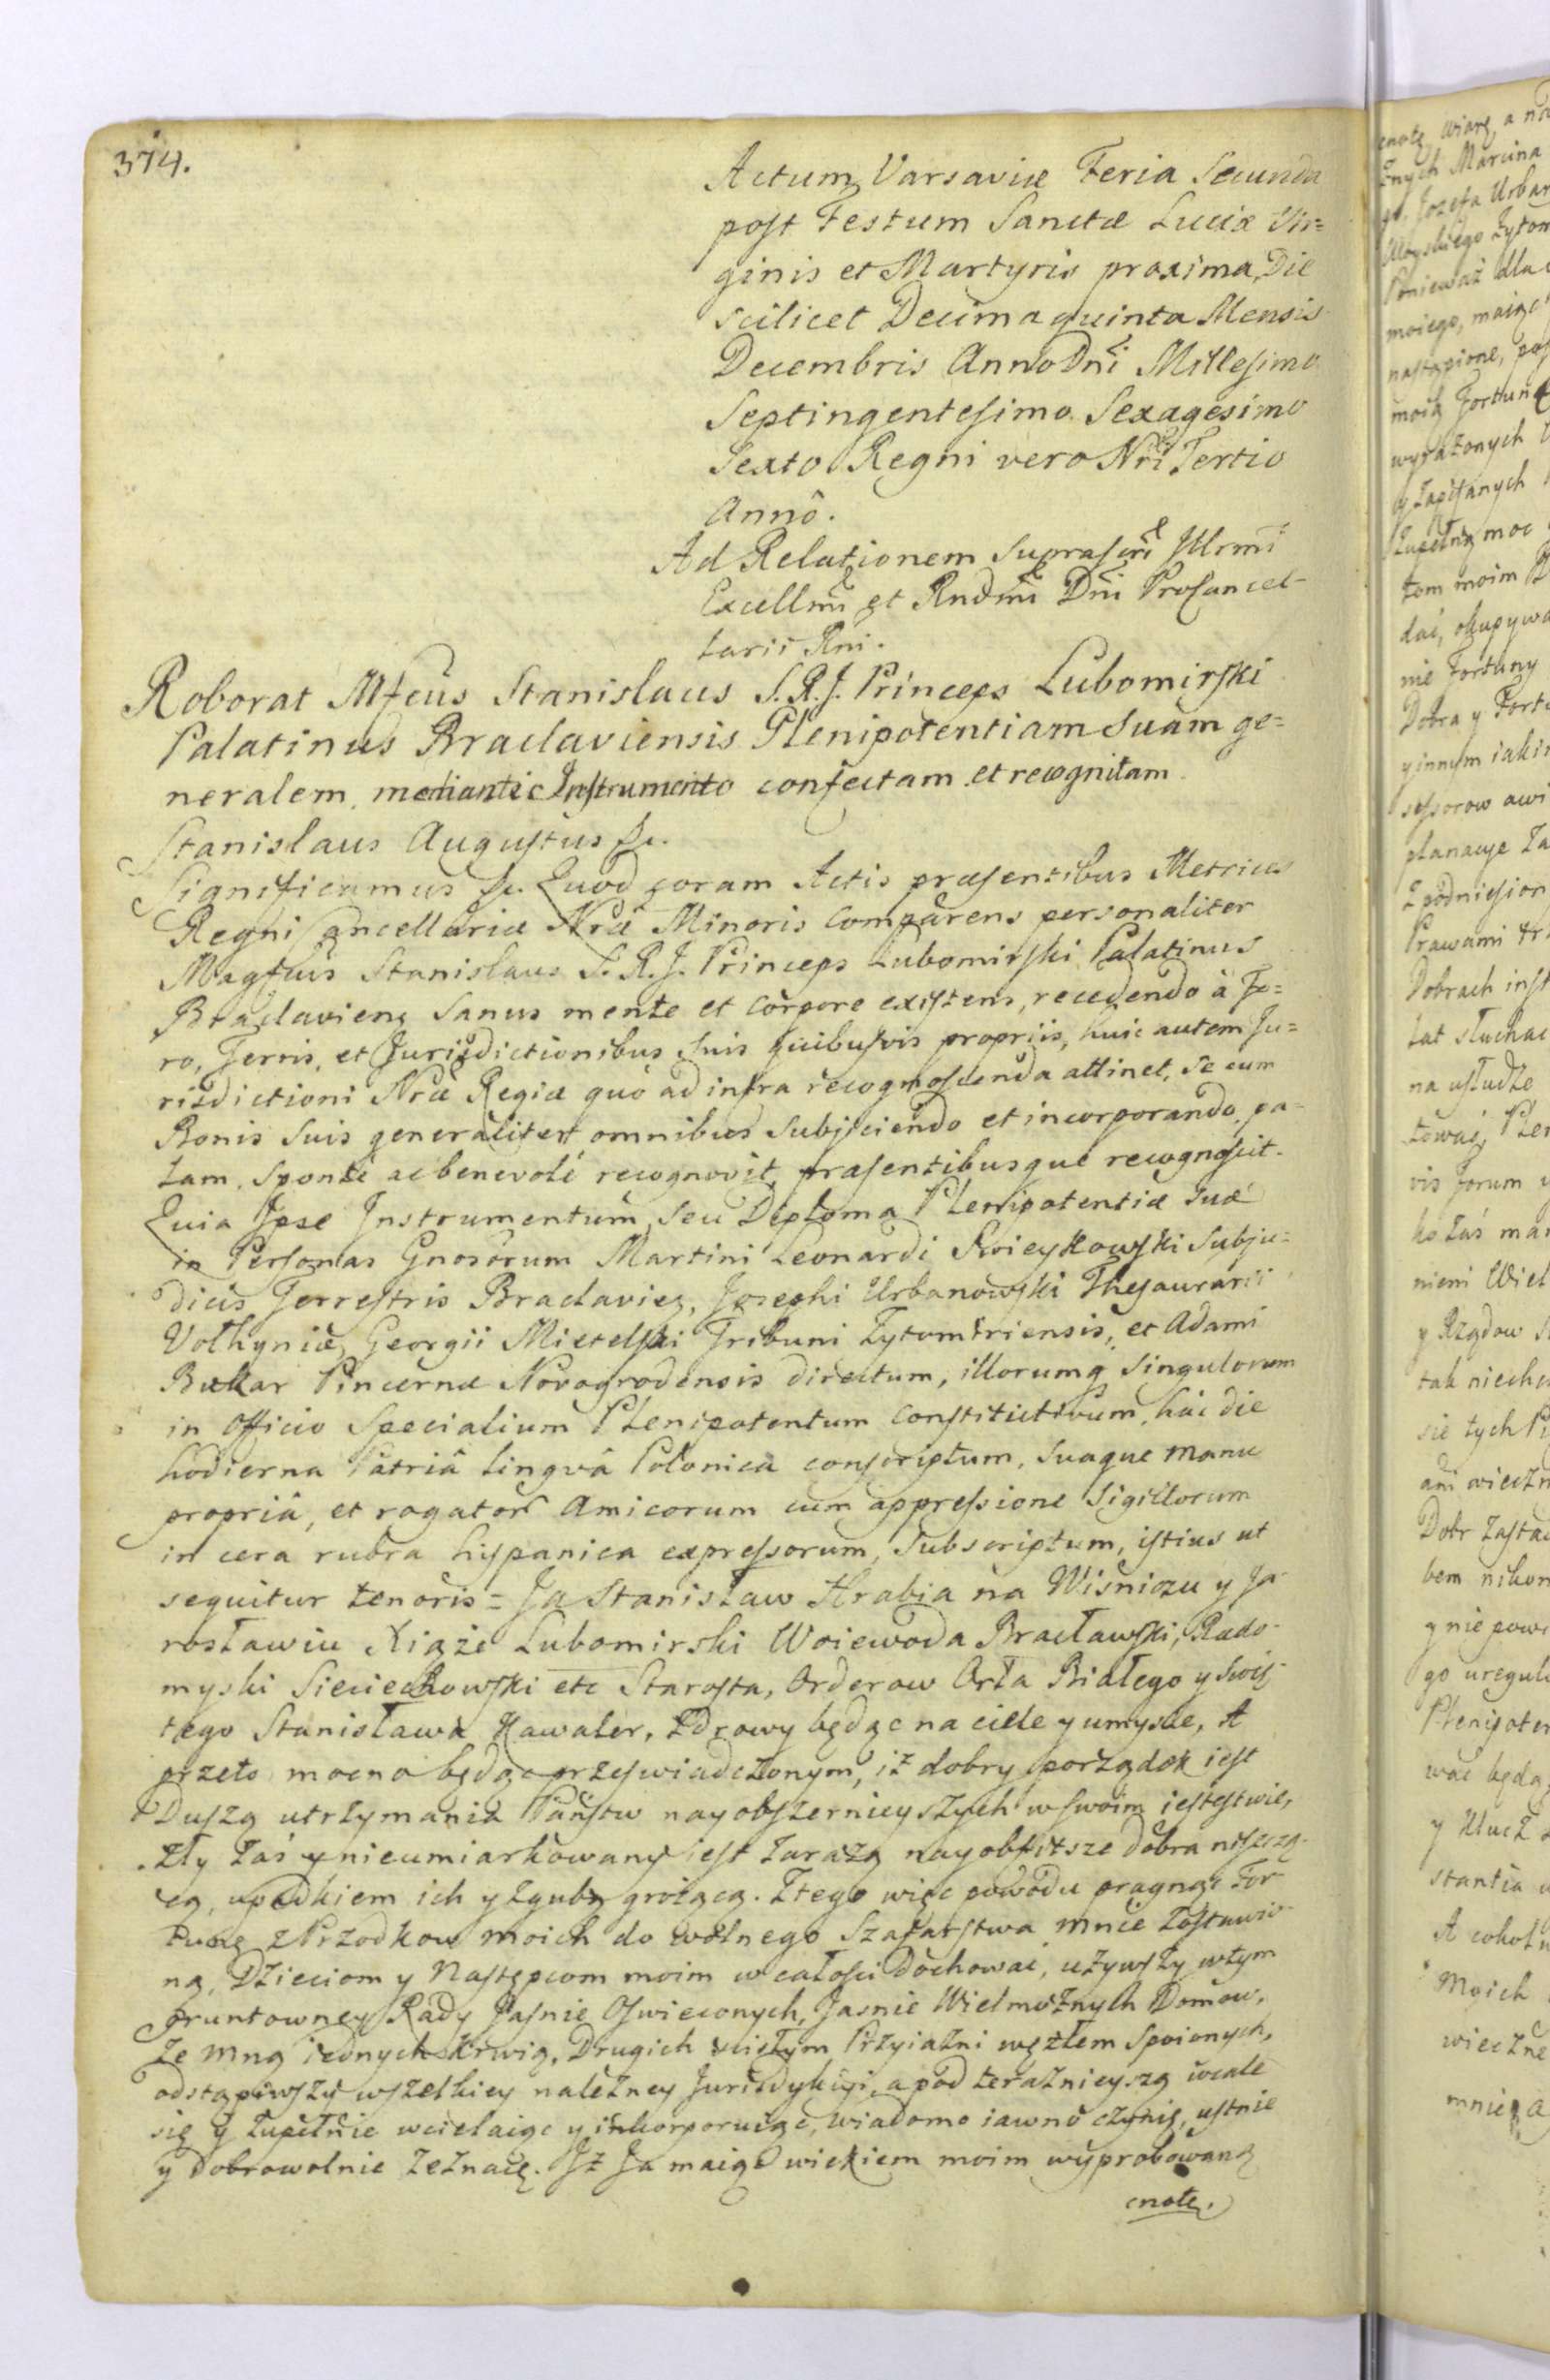 374.
Actum Varsaviæ Feria Secunda
post Festum Sanctæ Luciæ Vir=
ginis et Martyris proxima, Die
scilicet Decima quinta Mensis
Decembris Anno Dni Millesimo
Septingentesimo Sexagesimo
Sexto Regni vero Nri Tertio
Annô.
Ad Relationem Suprascri Illrmi
Excellmi et Rndmi Dni Procancel-
larii Rni.
Roborat Mfcus Stanislaus S.R.J. Princeps Lubomirski
Palatinus Braclaviensis Plenipotentiam Suam ge=
neralem, mediante Instrumento confectam et recognitam
Stanislaus Augustus &c.
Significamus &c. Quod coram Actis præsentibus Metrices
Regni Cancellariæ Nræ Minoris Comparens personaliter
Magfcus Stanislaus S. R. J. Princeps Lubomirski Palatinus
Braclavien, Sanus mente et corpore existens, recedendo à Fo=
ro, Terris, et Jurisdictionibus Suis quibusvis propriis, huic autem Ju=
risdictioni Nræ Regiæ quò ad infra recognoscenda attinet, Se cum
Bonis Suis generaliter omnibus Subjiciendo et incorporando, pa=
lam, Sponte ac benevolè recognovit, præsentibusque recognoscit.
Quia Jpse Jnstrumentum, Seu Diploma Plenipotentiæ Suæ
in Personas Gnosorum Martini Leonardi Swieykowski Subju=
dicis Terrestris Braclavien, Josephi Urbanowski Thesaurarii
Volhyniæ, Georgii Mietelski Tribuni Zytomiriensis, et Adami
Bukar Pincernæ Novogrodensis directum, illorumq Singulorum
in Officio Specialium Plenipotentum Constitutivum, hac die
hodierna Patriâ Linguâ Polonica conscriptum, Suaque manu
propriâ, et rogator Amicorum cum appressione Sigillorum
in cera rubra hispanica expressorum, Subscriptum, istius ut
sequitur tenoris = Ja Stanisław Hrabia na Wisniczu y Ja-
rosławiu Xiąże Lubomirski Woiewoda Bracławski, Rado-
myski Sieciechowski etc Starosta, Orderow Orła Białego y Swię-
tego Stanisława Kawaler, Zdrowy będąc na ciele y umysle, A
przeto mocno będąc przeswiadczonym, iż dobry porządek iest
Duszą utrzymania Państw nayobszernieyszych w swoim iestestwie,
zły zaś y nieumiarkowany iest zarazą nayobfitsze dobra niszczą-
cą, upadkiem ich y zgubą grożącą. Z tego więc powodu pragnąc For
tunę z Przodkow moich do wolnego Szafarstwa mnie zostawio-
ną, Dzieciom y Następcom moim w całosci Dochować, używszy w tym
gruntowney Rady Jasnie Oswieconych, Jasnie Wielmożnych Domow,
ze mną iednych krwią, Drugich scisłym Przyiaźni węzłem Spoionych,
odstąpiwszy wszelkiey należney Jurisdykcyi, a pod teraźnieyszą wcale
się y zupełnie wcielaiąc y inkorporuiąc, wiadomo iawno czynię, ustnie
y dobrowolnie zeznaię. Jż Ja maiąc wiekiem moim wyprobowaną
cnotę,